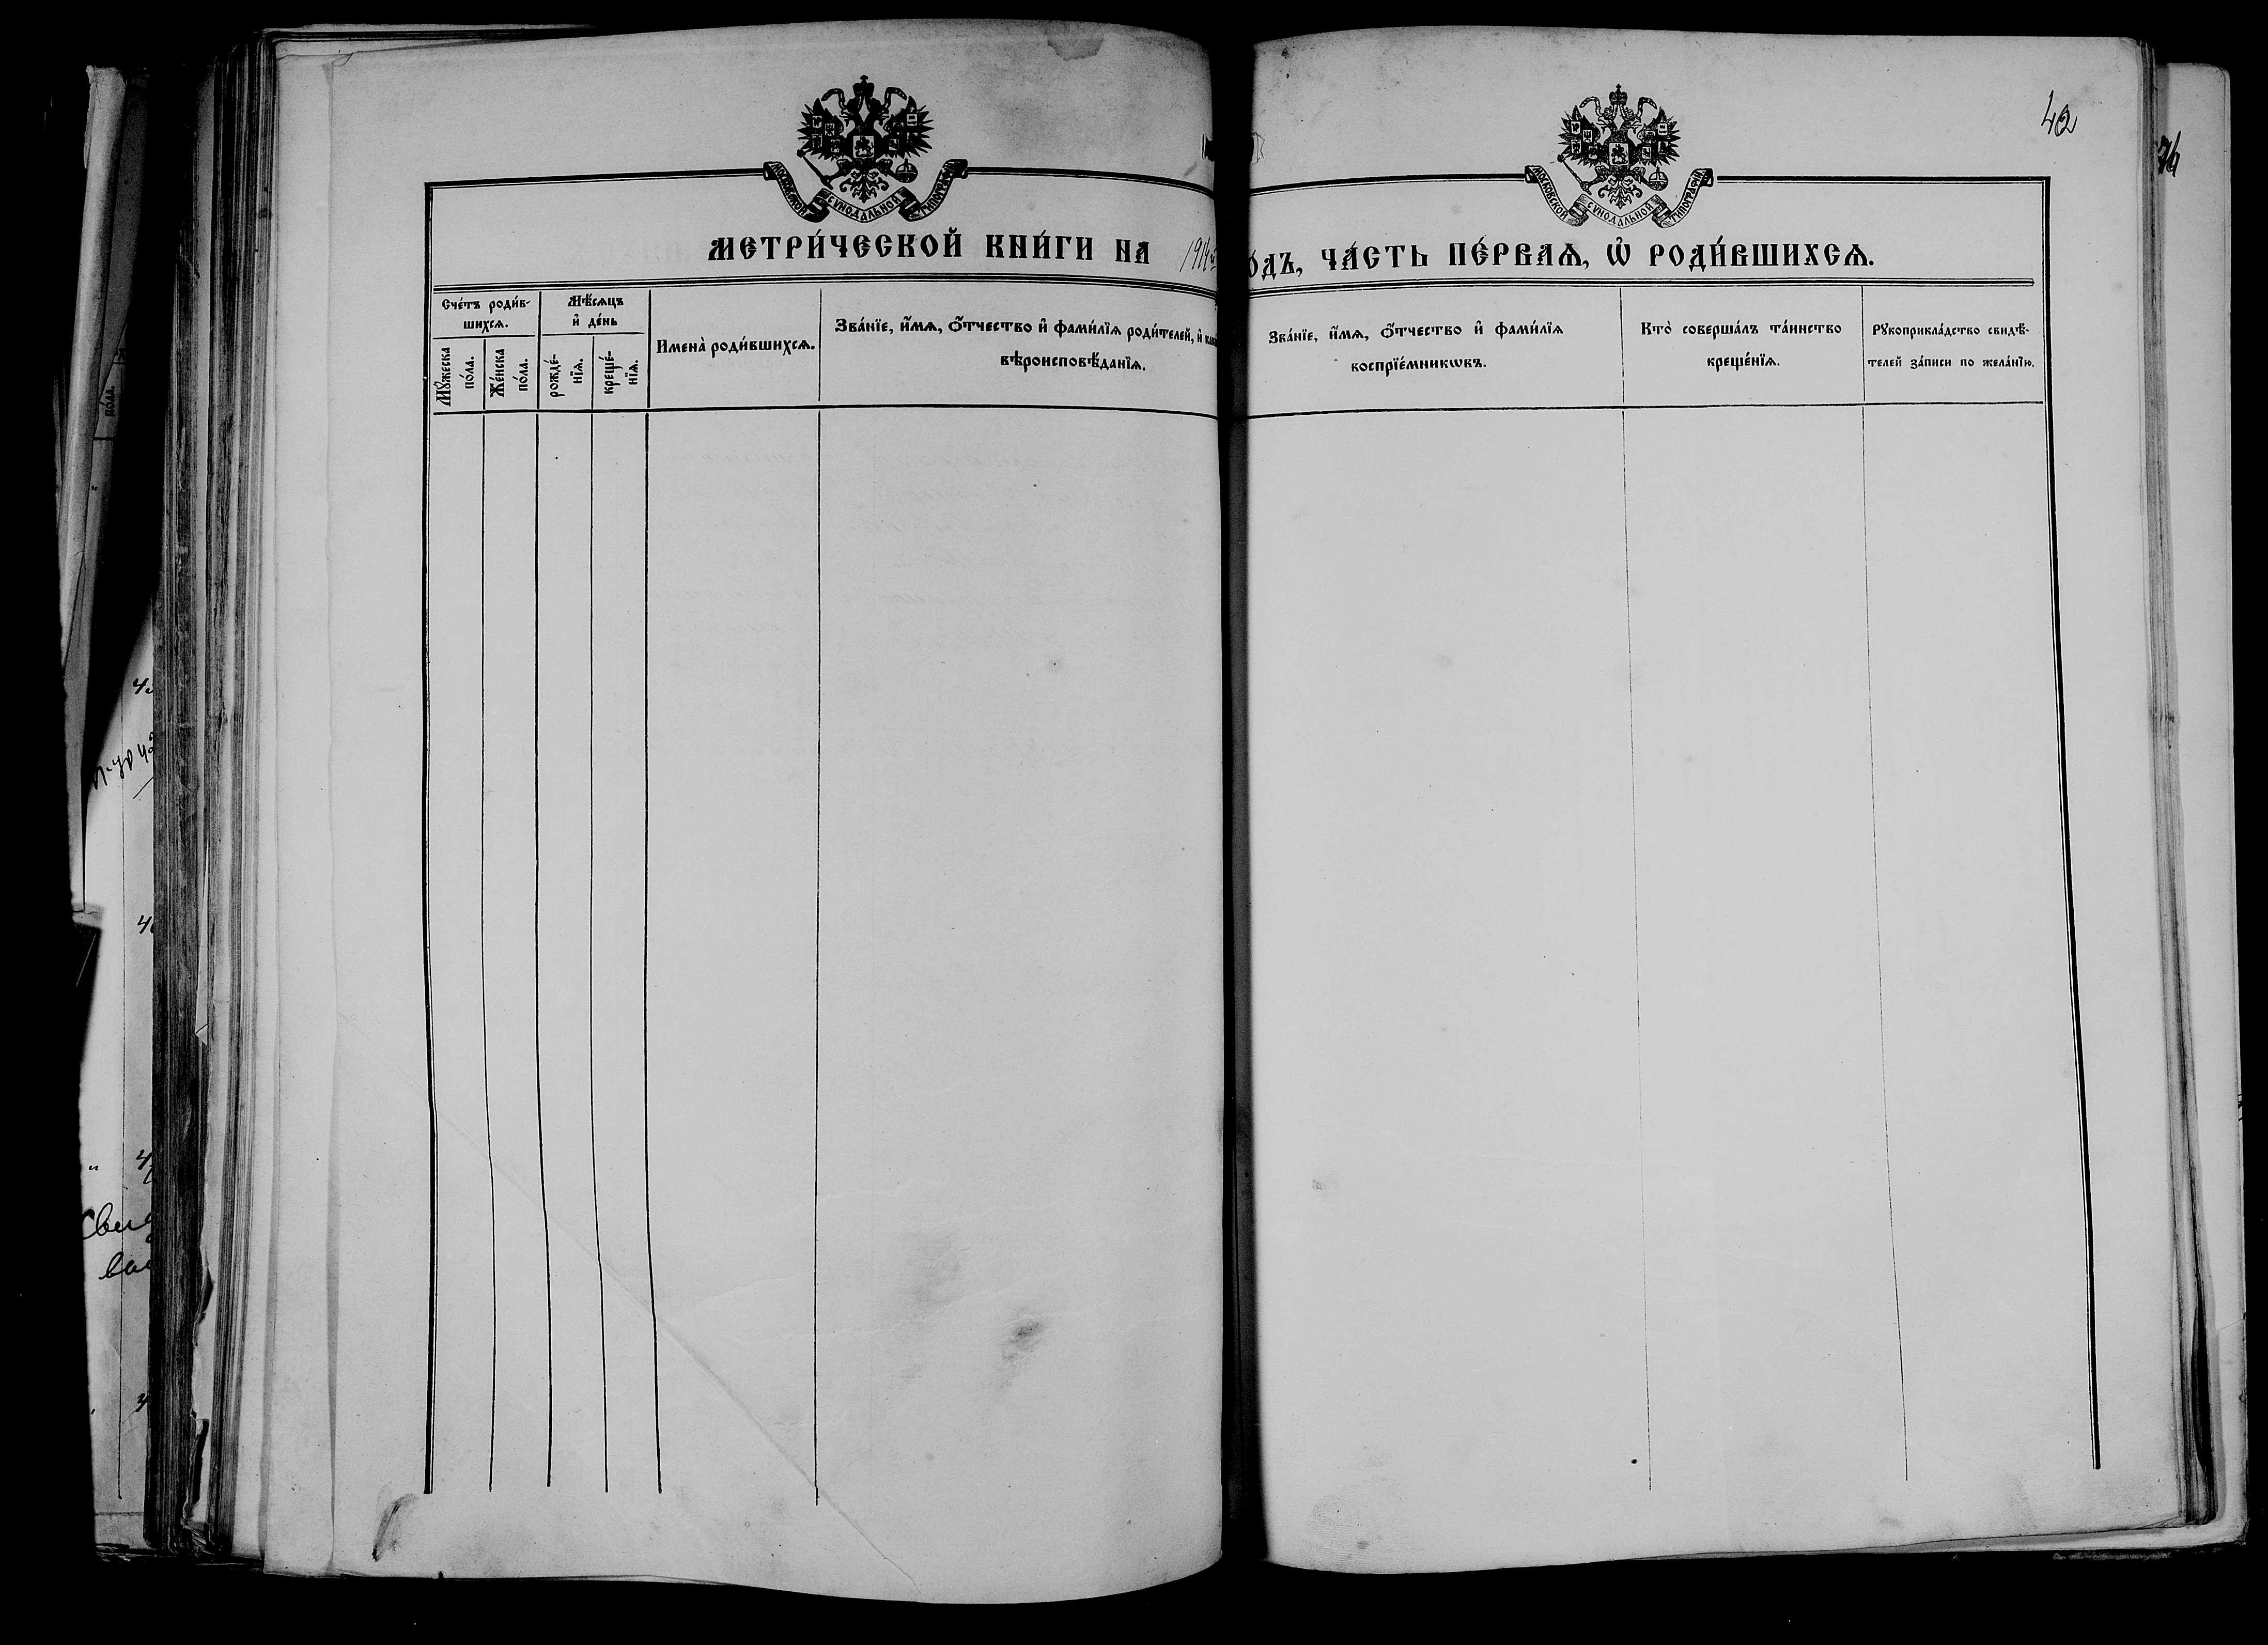 42
76
МОСКОВСКОЙ СѴНОДАЛЬНОЙ ТИПОГРАФІИ
МОСКОВСКОЙ СѴНОДАЛЬНОЙ ТИПОГРАФІИ
МЕТРИ́ЧЕСКОЙ КНИ́ГИ НА 1914
О́ДЪ, ЧА́СТЬ ПЕ́РВАѦ, Ѡ҆ РОДИ́ВШИХСѦ.
Сче́тъ роди́в-
шихсѧ.
Мꙋ́жеска
по́ла.
Же́нска
по́ла.
Мѣ́сѧцъ
и҆ де́нь
рожде́-
нїѧ.
креще́-
нїѧ.
Имена̀ роди́вшихсѧ.
Зва́нїе, и҆́мѧ, ѻ҆́тчество и҆ фами́лїѧ роди́телей, и҆
вѣроисповѣ́данїѧ.
Зва́нїе, и҆́мѧ, ѻ҆́тчество и҆ фами́лїѧ
воспрїе́мникѡвъ.
Кто̀ соверша́лъ та́инство
креще́нїѧ.
Рꙋкоприкла́дство свидѣ́-
телей за́писи по жела́нїю.